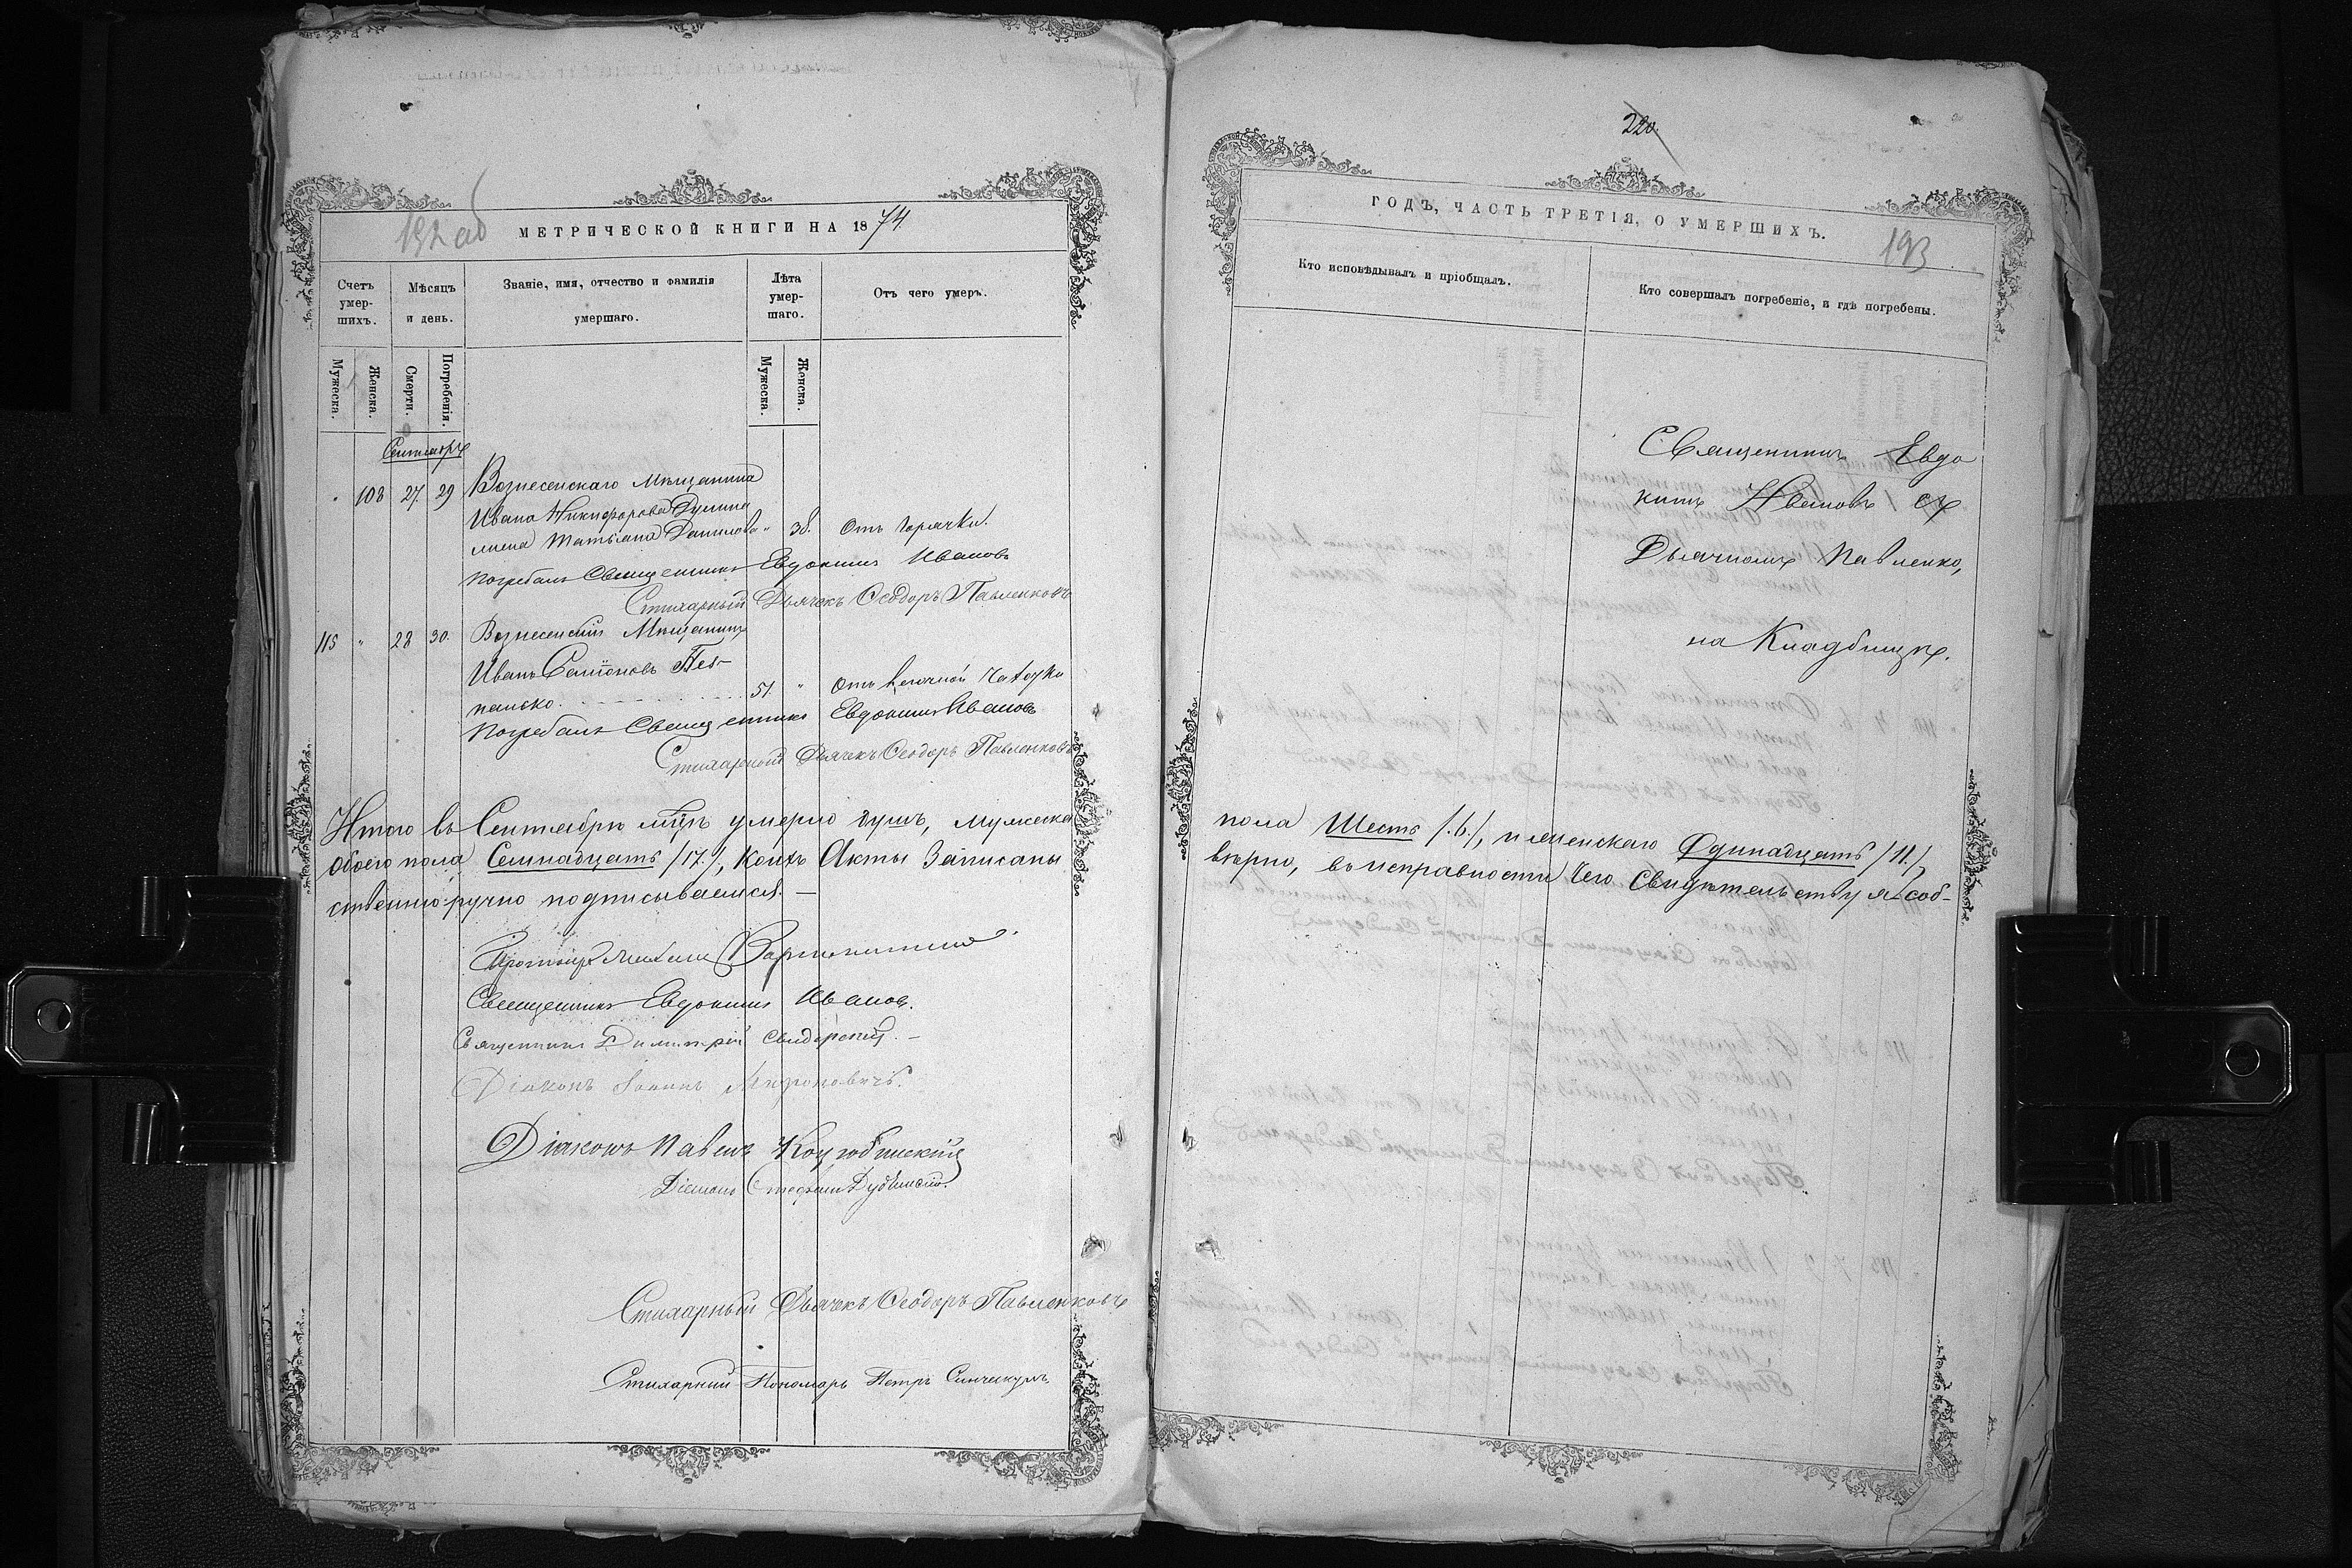 192 об
МЕТРИЧЕСКОЙ КНИГИ НА 1874.
Счетъ умер-шихъ.
Мѣсяцъ и день.
Званіе, имя, отчество и фамилія умершаго.
Лѣта умер-шаго.
Отъ чего умеръ.
Мужеска.
Женска.
Смерти.
Погребенія.
Мужеска.
Женска.
Сентябрь
108 27. 29 Вознесенскаго Мѣщанина
Ивана Никифорова
жена Татьяна Данилова " 38. Отъ горячки.
Погребалъ Священникъ Евдокимъ Ивановъ
Стихарный Дьячекъ Ѳеодоръ Павленковъ
115 " 28 30. Вознесенскій Мѣщанинъ
Иванъ
51. " Отъ
Погребалъ Священникъ Евдокимъ Ивановъ
Стихарный Дьячекъ Ѳеодоръ Павленковъ
Итого въ Сентябрѣ м-цѣ умерло душъ, мужеска
обоего пола Семнадцать /17./, Коихъ Акты Записаны
ственно-ручно подписываемся. —
Протоіерей
Священникъ Евдокимъ Ивановъ.
Священникъ Димитрій Свидерскій. —
Діаконъ Іоаннъ Мироновичъ.
Діаконъ Павелъ Коцюбинскій
Діаконъ Стефанъ Дубинскій.
Стихарный Дьячекъ Ѳеодоръ Павленковъ
Стихарный Пономарь Петръ
220.
ГОДЪ, ЧАСТЬ ТРЕТІЯ, О УМЕРШИХЪ.
193
Кто исповѣдывалъ и пріобщалъ.
Кто совершалъ погребеніе, и гдѣ погребены.
Священникъ Евдо
кимъ Ивановъ съ
Дьячкомъ Павленко,
на Кладбищѣ.
пола Шесть /.6./, и женскаго Одинадцать /11./,
вѣрно, въ исправности чего Свидѣтельствуя соб-